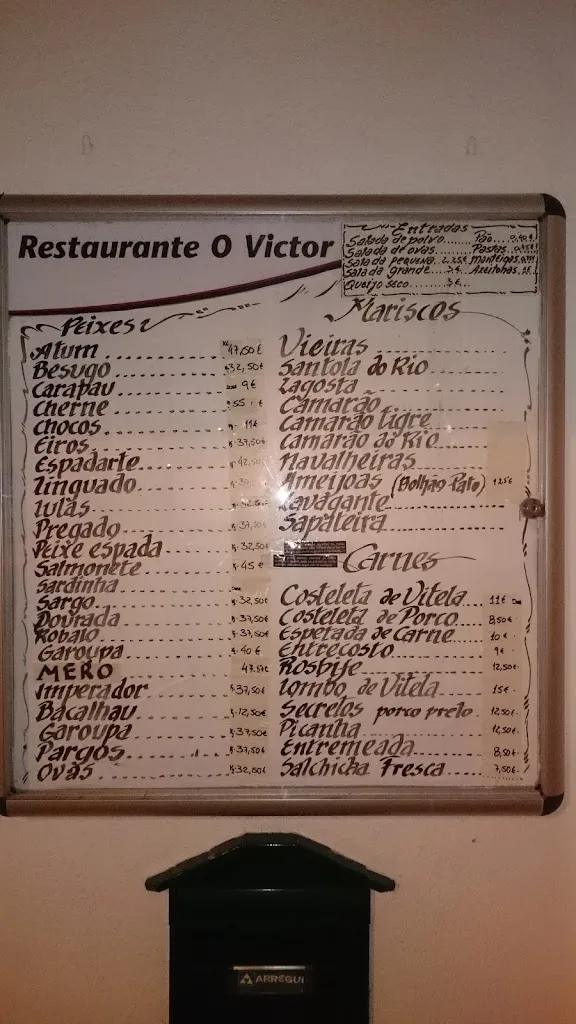 Restaurante O Victor
Entradas
Salada de polvo......
Pão.... 0,40€
Salada de ovas.....
Pastas..
Salada pequena.. 2,25€
Manteigas
Salada grande... 3€..
Azeitonas. 1€.
Queijo seco..... 3€...
Peixes
Atum............ 47,50€
Besugo.......... 32,50€
Carapau......... 9€
Cherne.......... 55€
Chocos.......... 11€
Eiros........... 37,50€
Espadarte....... 42,50
Linguado........
Lulas...........
Pregado......... 37,50
Peixe espada.... 32,50€
Salmonete....... 45€
Sardinha........
Sargo........... 32,50€
Dourada......... 37,50€
Robalo.......... 37,50€
Garoupa......... 40€
MERO............ 47.50€
Imperador....... 37,50€
Bacalhau........ 12,50€
Garoupa......... 37,50€
Pargos.......... 37,50€
Ovas............ 32,50€
Mariscos
Vieiras.........
Santola do Rio..
Lagosta.........
Camarão.........
Camarão tigre...
Camarão do Rio..
Navalheiras.....
Ameijoas (Bolhão Pato) 12,5€
Lavagante.......
Sapateira.......
Carnes
Costeleta de Vitela... 11€
Costeleta de Porco.... 8,50€
Espetada de Carne..... 10€
Entrecosto............ 9€
Rosbife............... 12,50€
Lombo de Vitela....... 15€
Secretos porco preto.. 12,50€
Picanha............... 12,50€
Entremeada............ 8,50€
Salchicha Fresca...... 7,50€
ARREGUI